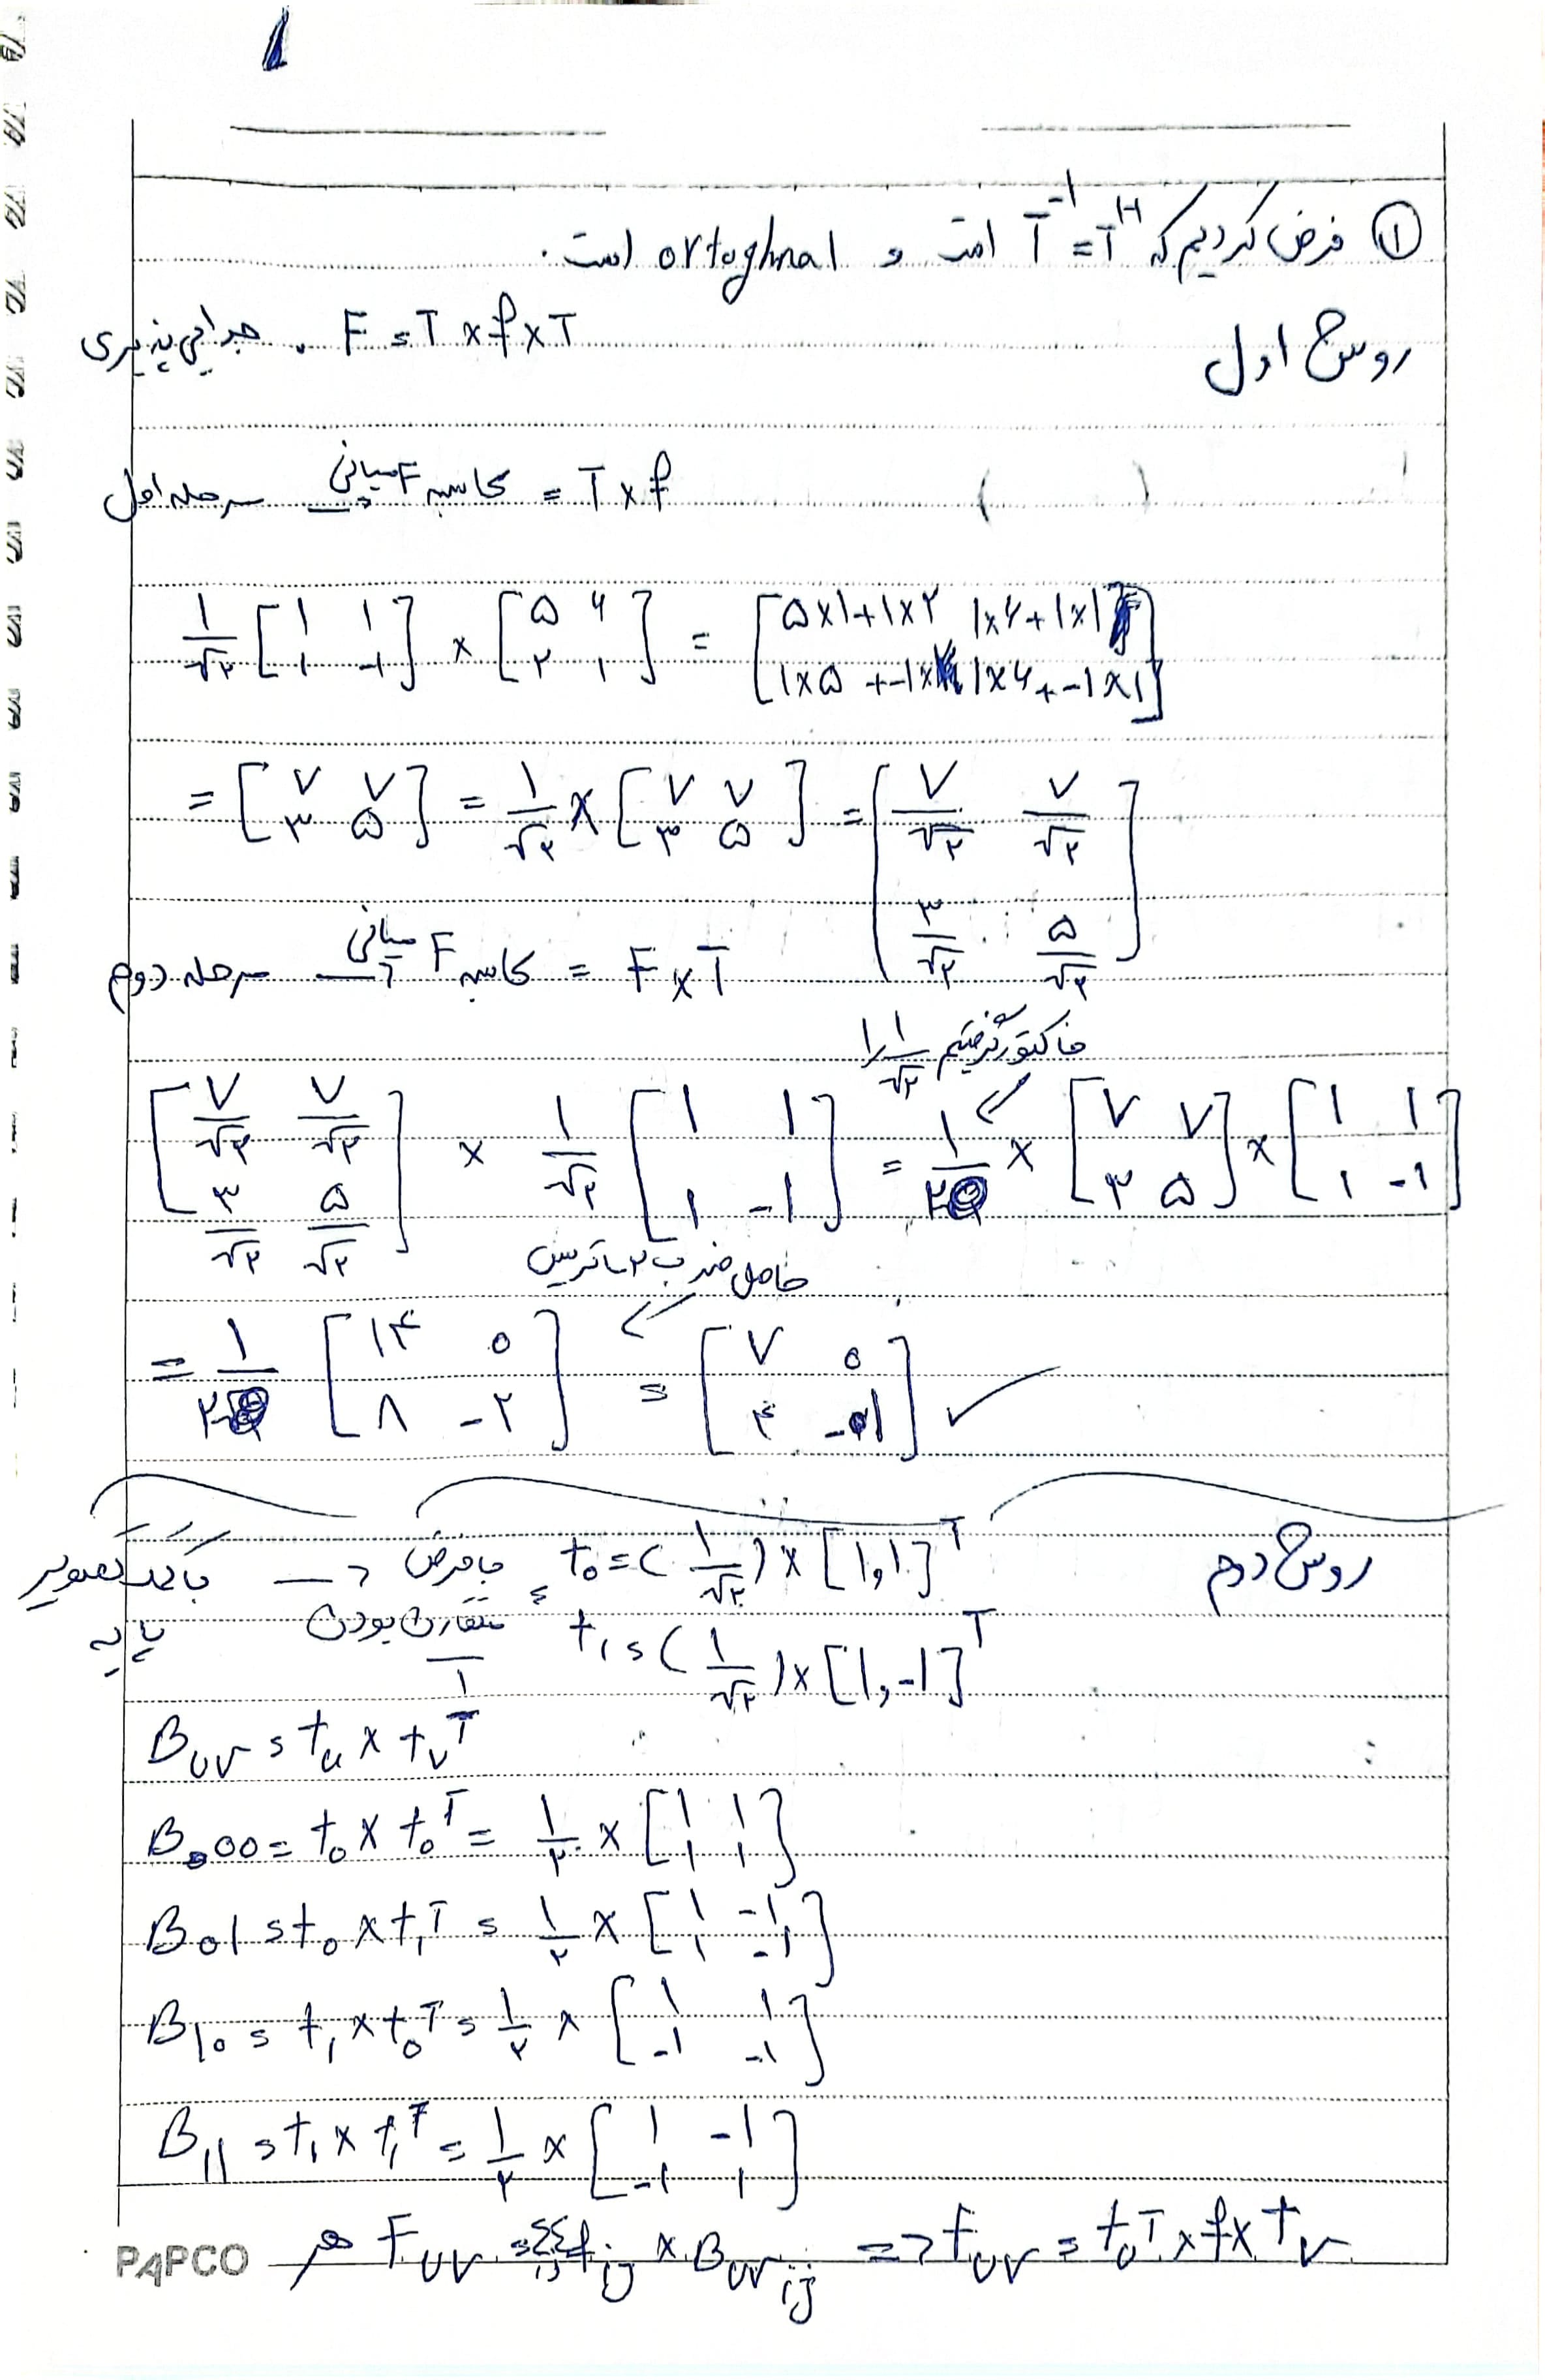 ① فرض کردیم که T⁻¹ = Tᴴ است و ortoghnal است.
روش اول
جدایی پذیری . F = T × f × T
مرحله اول → محاسبه F میانی = T × f
1/√۲ [1 1; 1 -1] × [۵ ۶; ۲ ۱] = [۵×1+1×۲ 1×۶+1×1; 1×۵+-1×۲ 1×۶+-1×1]
= [۷ ۷; ۳ ۵] = 1/√۲ × [۷ ۷; ۳ ۵] = [۷/√۲ ۷/√۲; ۳/√۲ ۵/√۲]
مرحله دوم → محاسبه F میانی = F × T
فاکتور گرفتیم 1/√۲ را
[۷/√۲ ۷/√۲; ۳/√۲ ۵/√۲] × 1/√۲ [1 1; 1 -1] = 1/۲ × [۷ ۷; ۳ ۵] × [1 1; 1 -1]
حاصل ضرب ۲ ماتریس
= 1/۲ [1۴ 0; ۸ -۲] = [۷ 0; ۴ -1] ✓
روش دوم
با کمک تصویر پایه → با فرض متقارن بودن T
t₀ = (1/√۲) × [1,1]ᵀ
t₁ = (1/√۲) × [1,-1]ᵀ
Buv = tu × tvᵀ
B00 = t₀ × t₀ᵀ = 1/۲ × [1 1; 1 1]
B01 = t₀ × t₁ᵀ = 1/۲ × [1 -1; 1 -1]
B10 = t₁ × t₀ᵀ = 1/۲ × [1 1; -1 -1]
B11 = t₁ × t₁ᵀ = 1/۲ × [1 -1; -1 1]
هر Fuv = ΣΣ fij × Buvij => Fuv = tuᵀ × f × tv
PAPCO